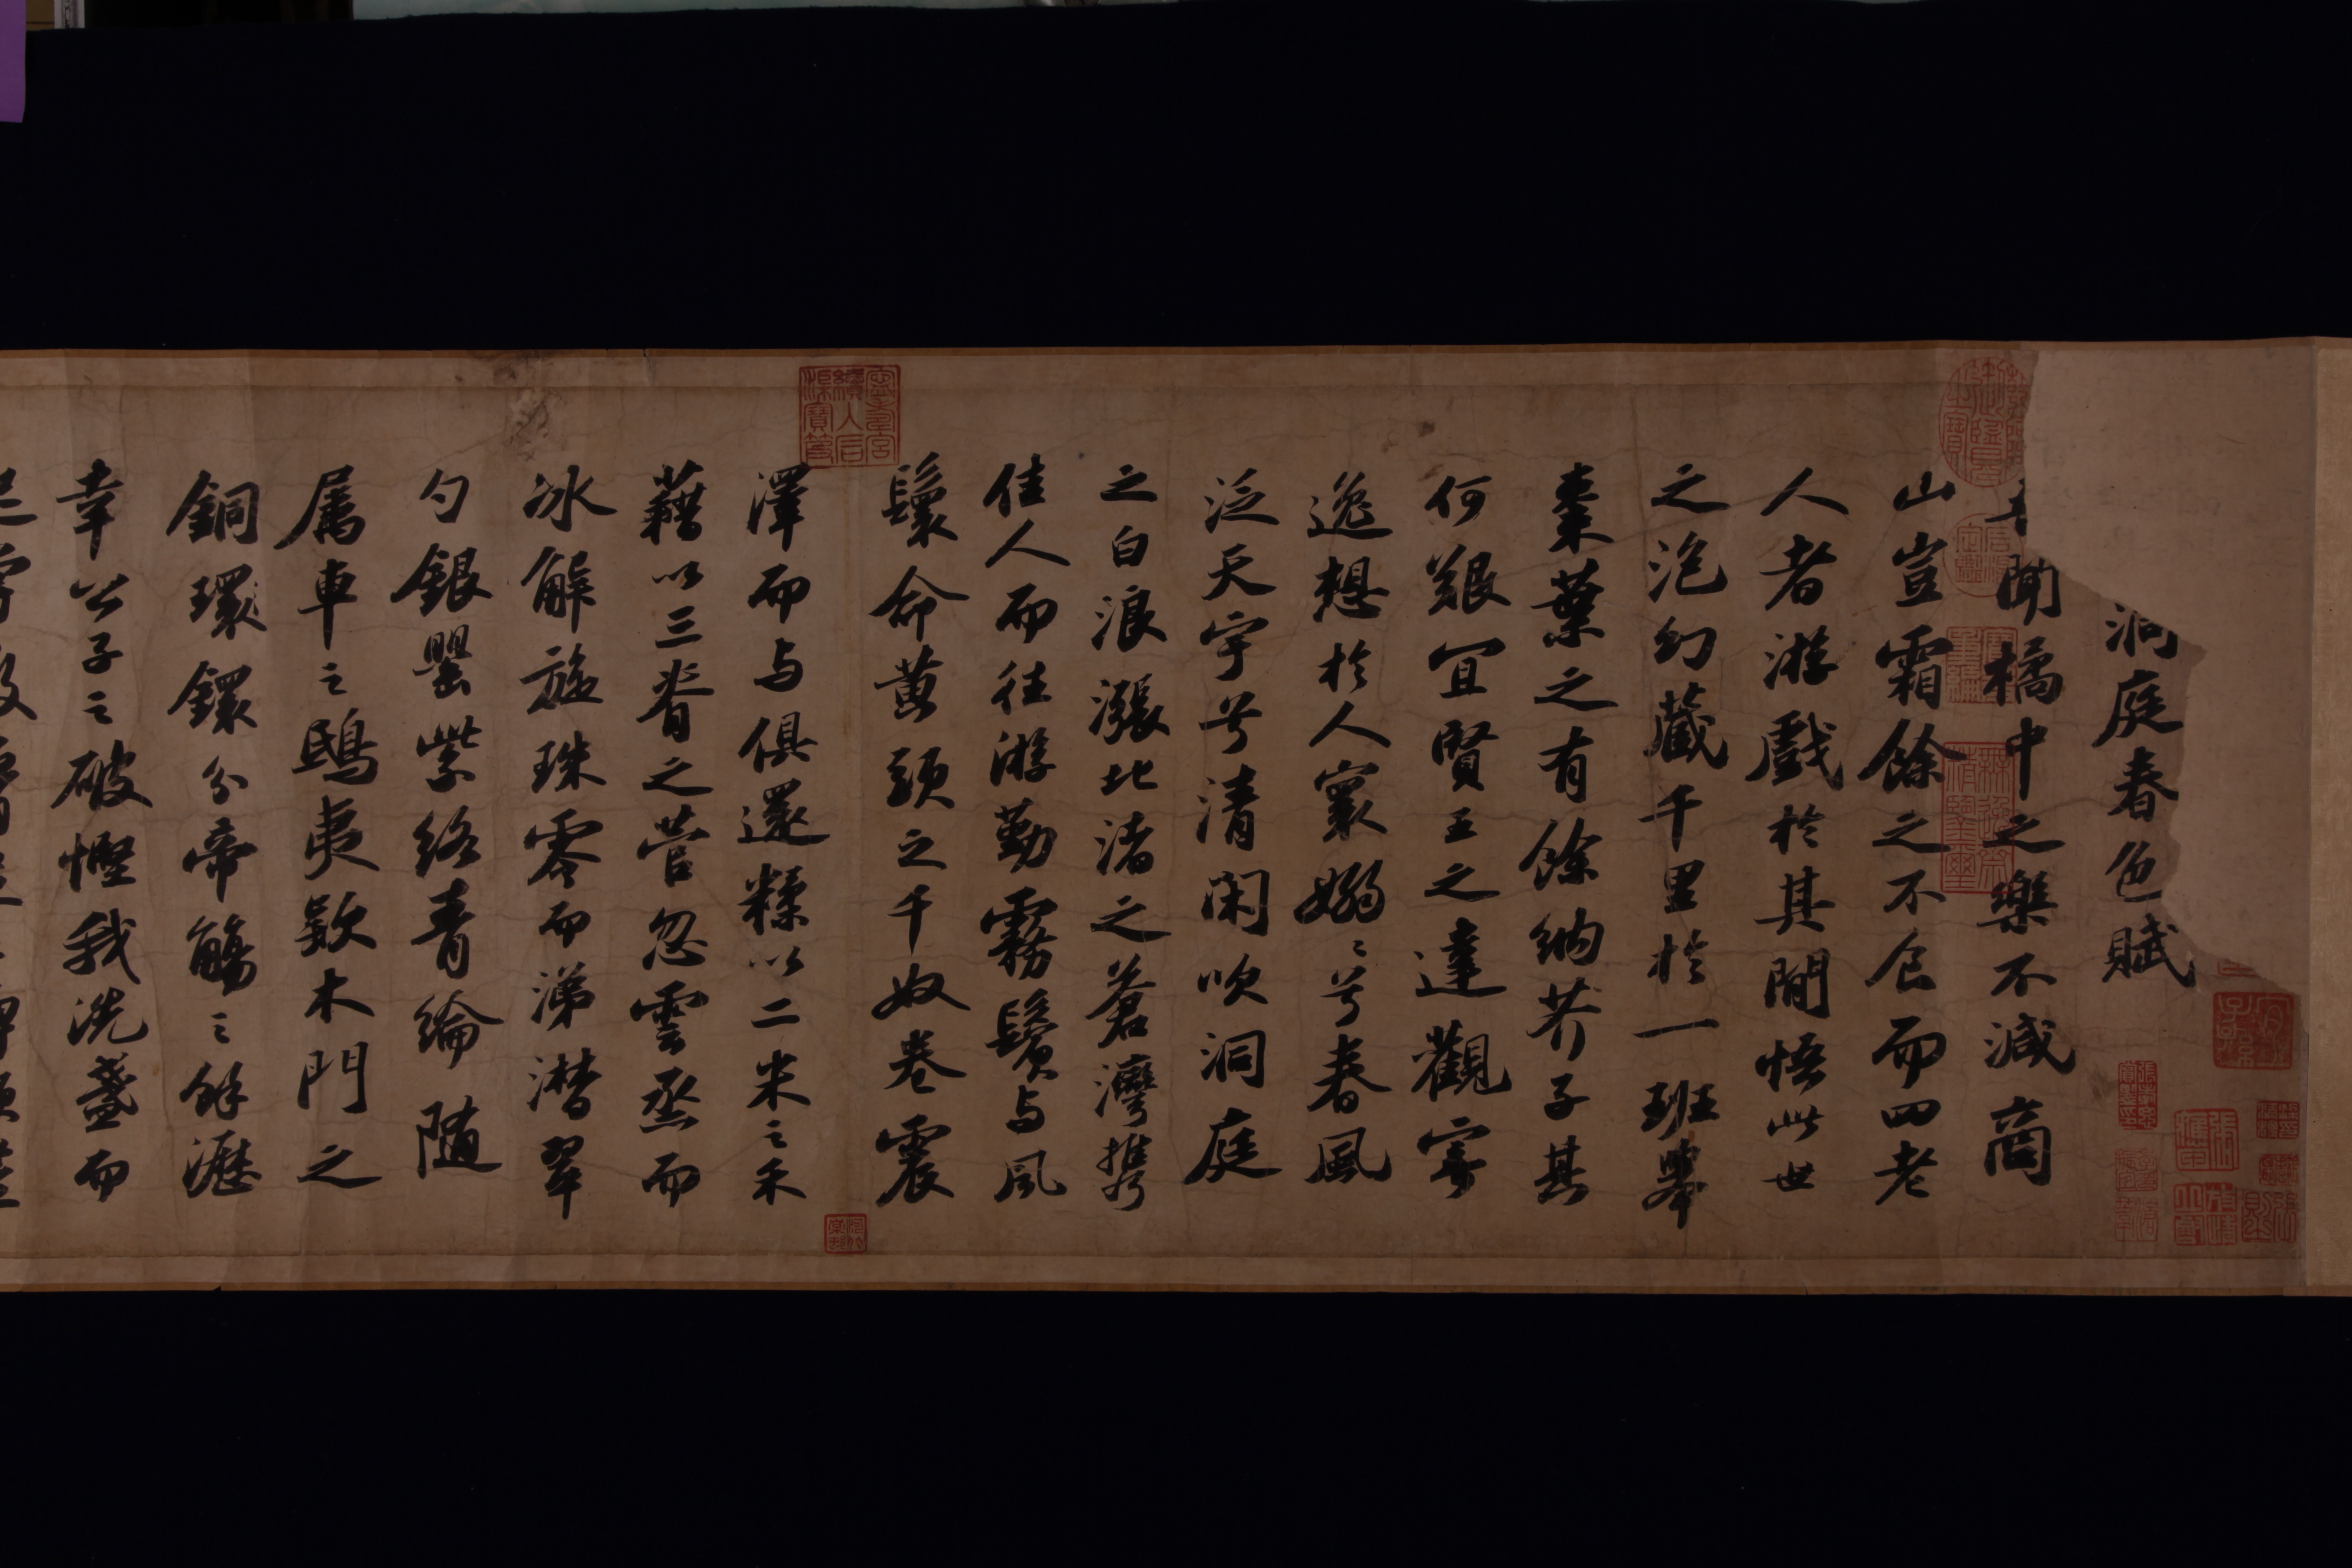 洞庭春色賦
聞橘中之樂不減商
山豈霜餘之不食而四老
人者游戲於其間悟此世
之泡幻藏千里於一班舉
棗葉之有餘納芥子其
何艱宜賢王之達觀寄
逸想於人寰嫋〻兮春風
泛天宇兮清閑吹洞庭
之白浪漲北渚之蒼灣攜
佳人而往游勤霧鬢与風
鬟命黃頭之千奴卷震
澤而与俱還糅以二米之禾
藉以三脊之菅忽雲烝而
冰解旋珠零而涕潸翠
勺銀罌紫絡青綸隨
屬車之鴟夷款木門之
銅環鐶分帝觴之餘瀝
幸公子之破慳我洗盞而